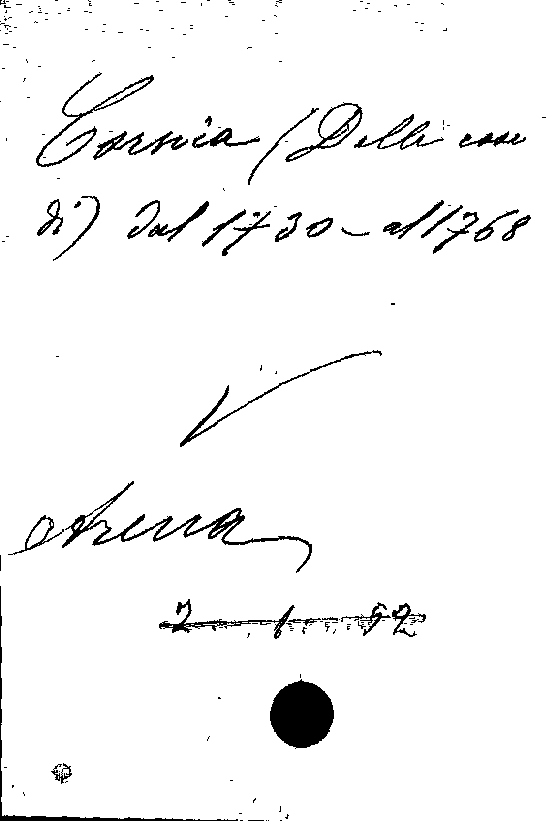 Corsica (Delle cose
di) dal 1730 - al 1768
Arena
2 1 52